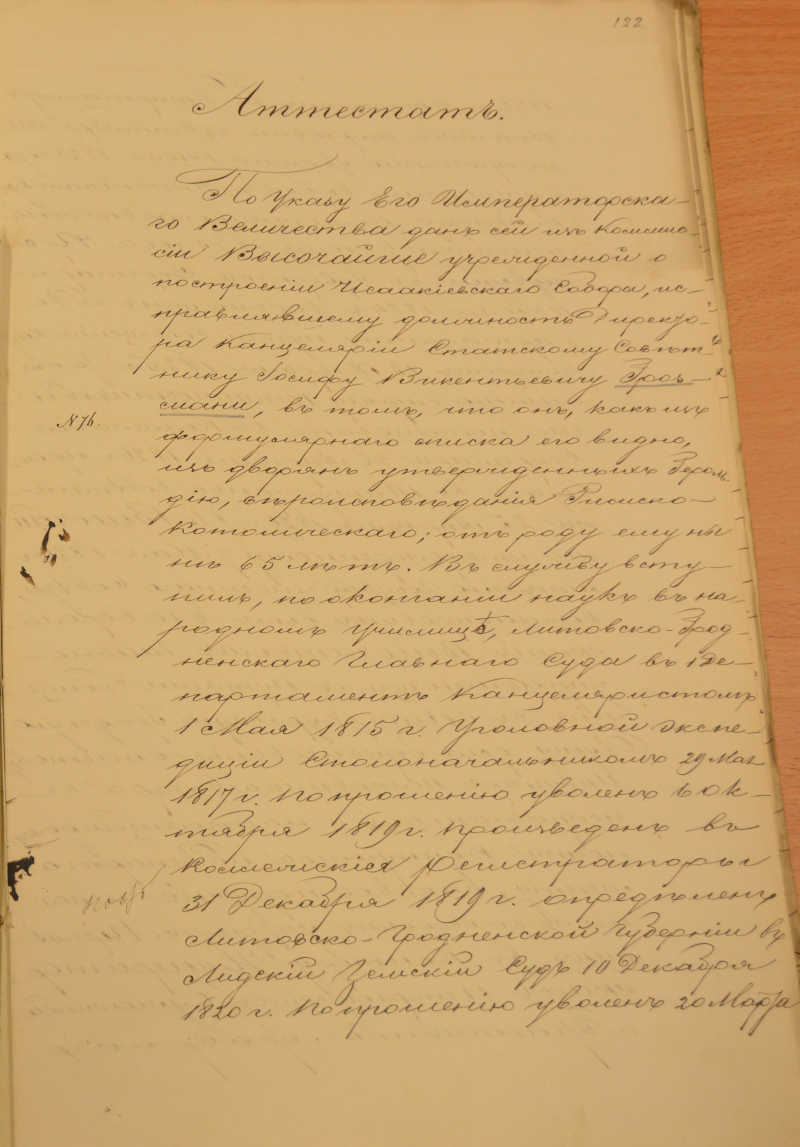 122
Аттестатъ.
По Указу Его Императорска-
го Величества данъ сей изъ Коммис-
сіи Высочайше учрежденной о
построеніи Исаакіевскаго Собора, ис-
правлявшему должность Директо-
ра Канцеляріи Статскому Совѣт-
нику Іосифу Викентьевичу
въ томъ, что онъ, какъ изъ
№ 76.
формулярнаго списка его видно,
изъ дворянъ утвержденныхъ Героль-
дію, вѣроисповѣданія Римско-
Католическаго; отъ роду ему ны
нѣ 65 лѣтъ. Въ службу всту-
пилъ, по окончаніи наукъ въ на-
родномъ училищѣ, Литовско-Грод-
ненскаго Главнаго Суда въ 1 Де-
партаментъ Канцеляристомъ
1 Мая 1815 г. Уголовной Экспе-
диціи Столоначальникомъ 29 Мая
1817 г. По прошенію уволенъ 6 Ок-
тября 1819 г. Произведенъ въ
Коллежскіе Регистраторы
31 Декабря 1819 г. опредѣленъ
Литовско-Гродненской Губерніи въ
Лидскій Земскій Судъ 10 Декабря
1820 г. По прошенію уволенъ 20 Марта